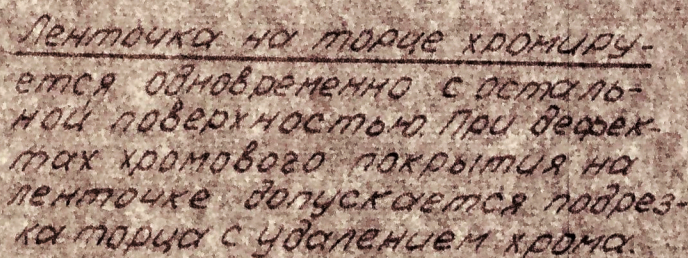 Ленточка на торце хромиру-
ется одновременно с осталь-
ной поверхностью. При дефек-
тах хромового покрытия на
ленточке допускается подрез-
ка торца с удалением хрома.